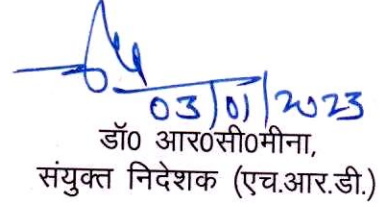 03/01/2023
डॉ0 आर0सी0मीना,
संयुक्त निदेशक (एच.आर.डी.)